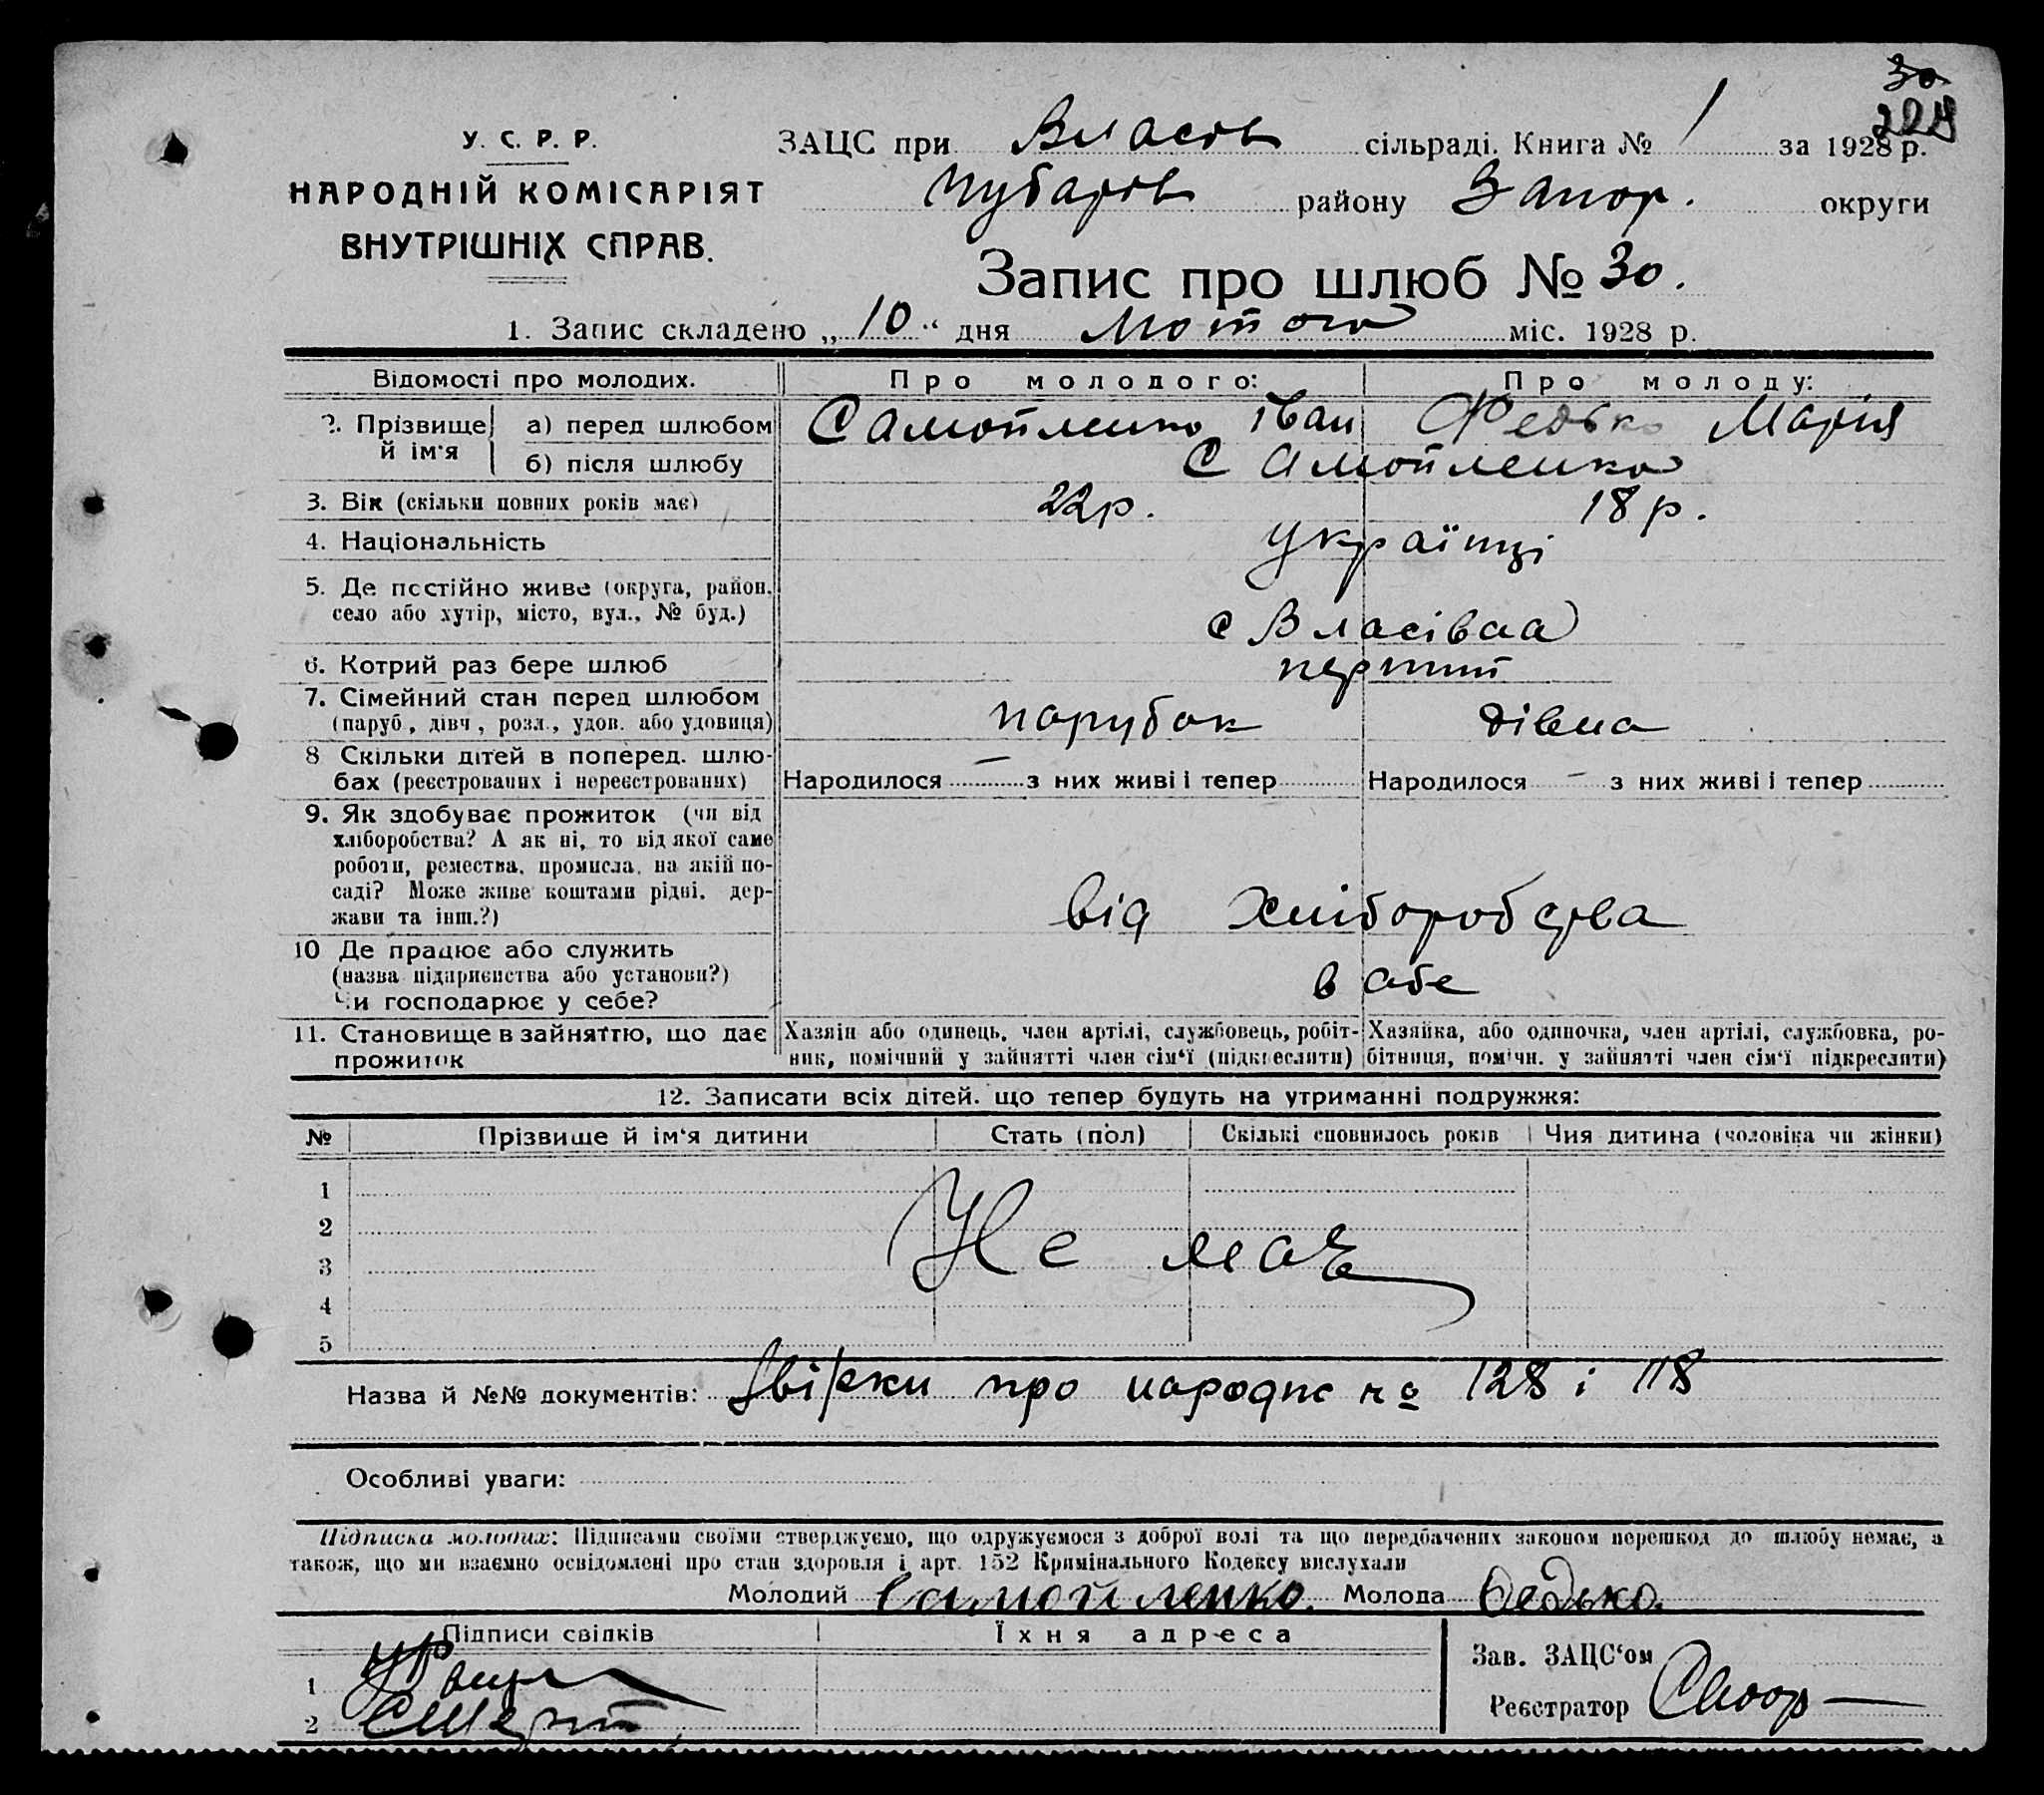 30
224
У. С. Р. Р.
НАРОДНІЙ КОМІСАРІЯТ
ВНУТРІШНІХ СПРАВ.
ЗАЦС при Власів сільраді. Книга № 1 за 1928 р.
Чубарів району Запор. округи
Запис про шлюб № 30.
1. Запис складено „ 10 “ дня Лютого міс. 1928 р.
Відомості про молодих. Про молодого: Про молоду:
2. Прізвище й ім'я а) перед шлюбом Самойленко Іван Федько Марія
б) після шлюбу Самойленко
3. Вік (скільки повних років має) 22 р. 18 р.
4. Національність Українці
5. Де постійно живе (округа, район,
село або хутір, місто, вул., № буд.) с Власівка
6. Котрий раз бере шлюб перший
7. Сімейний стан перед шлюбом
(паруб., дівч., розл., удов. або удовиця) парубок дівча
8 Скільки дітей в поперед. шлю-
бах (реєстрованих і нереєстрованих) Народилося — з них живі і тепер Народилося — з них живі і тепер
9. Як здобуває прожиток (чи від
хліборобства? А як ні, то від якої саме
роботи, ремества, промисла, на якій по-
саді? Може живе коштами рідні, дер-
жави та інш.?) від хліборобства
10 Де працює або служить
(назва підприємства або установи?)
Чи господарює у себе? в себе
11. Становище в зайняттю, що дає
прожиток
Хазяїн або одинець, член артілі, службовець, робіт-
ник, помічний у зайнятті член сім‘ї (підкреслити)
Хазяйка, або одиночка, член артілі, службовка, ро-
бітниця, помічн. у зайнятті член сім‘ї підкреслити)
12. Записати всіх дітей, що тепер будуть на утриманні подружжя:
№ Прізвище й ім‘я дитини Стать (пол) Скількі сповнилось років Чия дитина (чоловіка чи жінки)
1
2
3
4
5
Не має
Назва й №№ документів: Звірки про народж № 128 і 118
Особливі уваги:
Підписка молодих: Підписами своїми стверджуємо, що одружуємося з доброї волі та що передбачених законом перешкод до шлюбу немає, а
також, що ми взаємно освідомлені про стан здоровля і арт. 152 Кримінального Кодексу вислухали
Молодий Самойленко. Молода Федько.
Підписи свідків Їхня адреса
1
2
Зав. ЗАЦС‘ом
Реєстратор